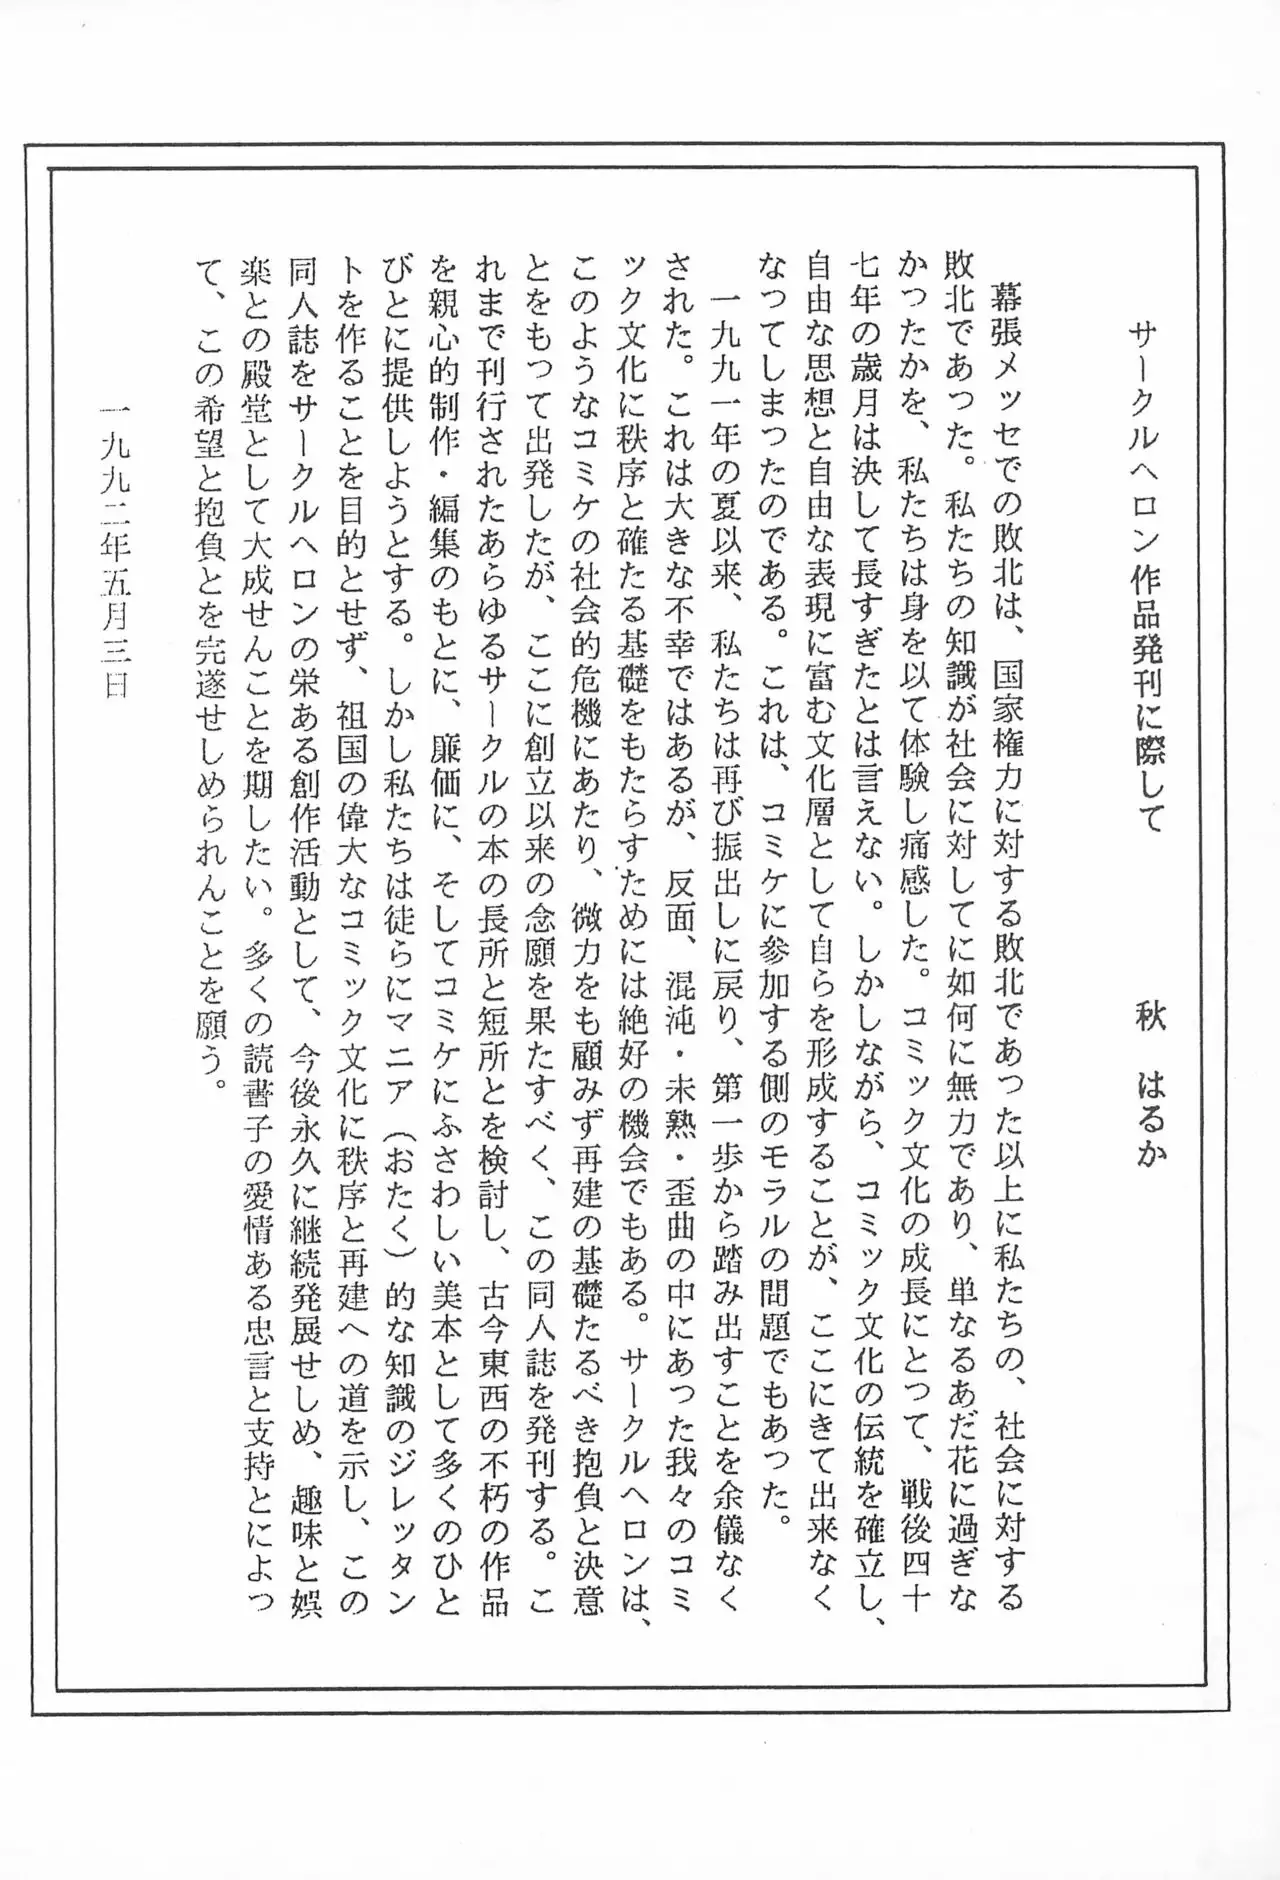 サークルヘロン作品発刊に際して
秋　はるか
幕張メッセでの敗北は、国家権力に対する敗北であった以上に私たちの、社会に対する
敗北であった。私たちの知識が社会に対してに如何に無力であり、単なるあだ花に過ぎな
かったかを、私たちは身を以て体験し痛感した。コミック文化の成長にとつて、戦後四十
七年の歳月は決して長すぎたとは言えない。しかしながら、コミック文化の伝統を確立し、
自由な思想と自由な表現に富む文化層として自らを形成することが、ここにきて出来なく
なってしまつたのである。これは、コミケに参加する側のモラルの問題でもあった。
一九九一年の夏以来、私たちは再び振出しに戻り、第一歩から踏み出すことを余儀なく
された。これは大きな不幸ではあるが、反面、混沌・未熟・歪曲の中にあった我々のコミ
ック文化に秩序と確たる基礎をもたらすためには絶好の機会でもある。サークルヘロンは、
このようなコミケの社会的危機にあたり、微力をも顧みず再建の基礎たるべき抱負と決意
とをもつて出発したが、ここに創立以来の念願を果たすべく、この同人誌を発刊する。こ
れまで刊行されたあらゆるサークルの本の長所と短所とを検討し、古今東西の不朽の作品
を親心的制作・編集のもとに、廉価に、そしてコミケにふさわしい美本として多くのひと
びとに提供しようとする。しかし私たちは徒らにマニア（おたく）的な知識のジレッタン
トを作ることを目的とせず、祖国の偉大なコミック文化に秩序と再建への道を示し、この
同人誌をサークルヘロンの栄ある創作活動として、今後永久に継続発展せしめ、趣味と娯
楽との殿堂として大成せんことを期したい。多くの読書子の愛情ある忠言と支持とによっ
て、この希望と抱負とを完遂せしめられんことを願う。
一九九二年五月三日